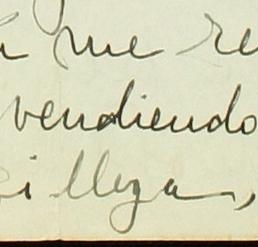 me re
vendiendo
si llega,